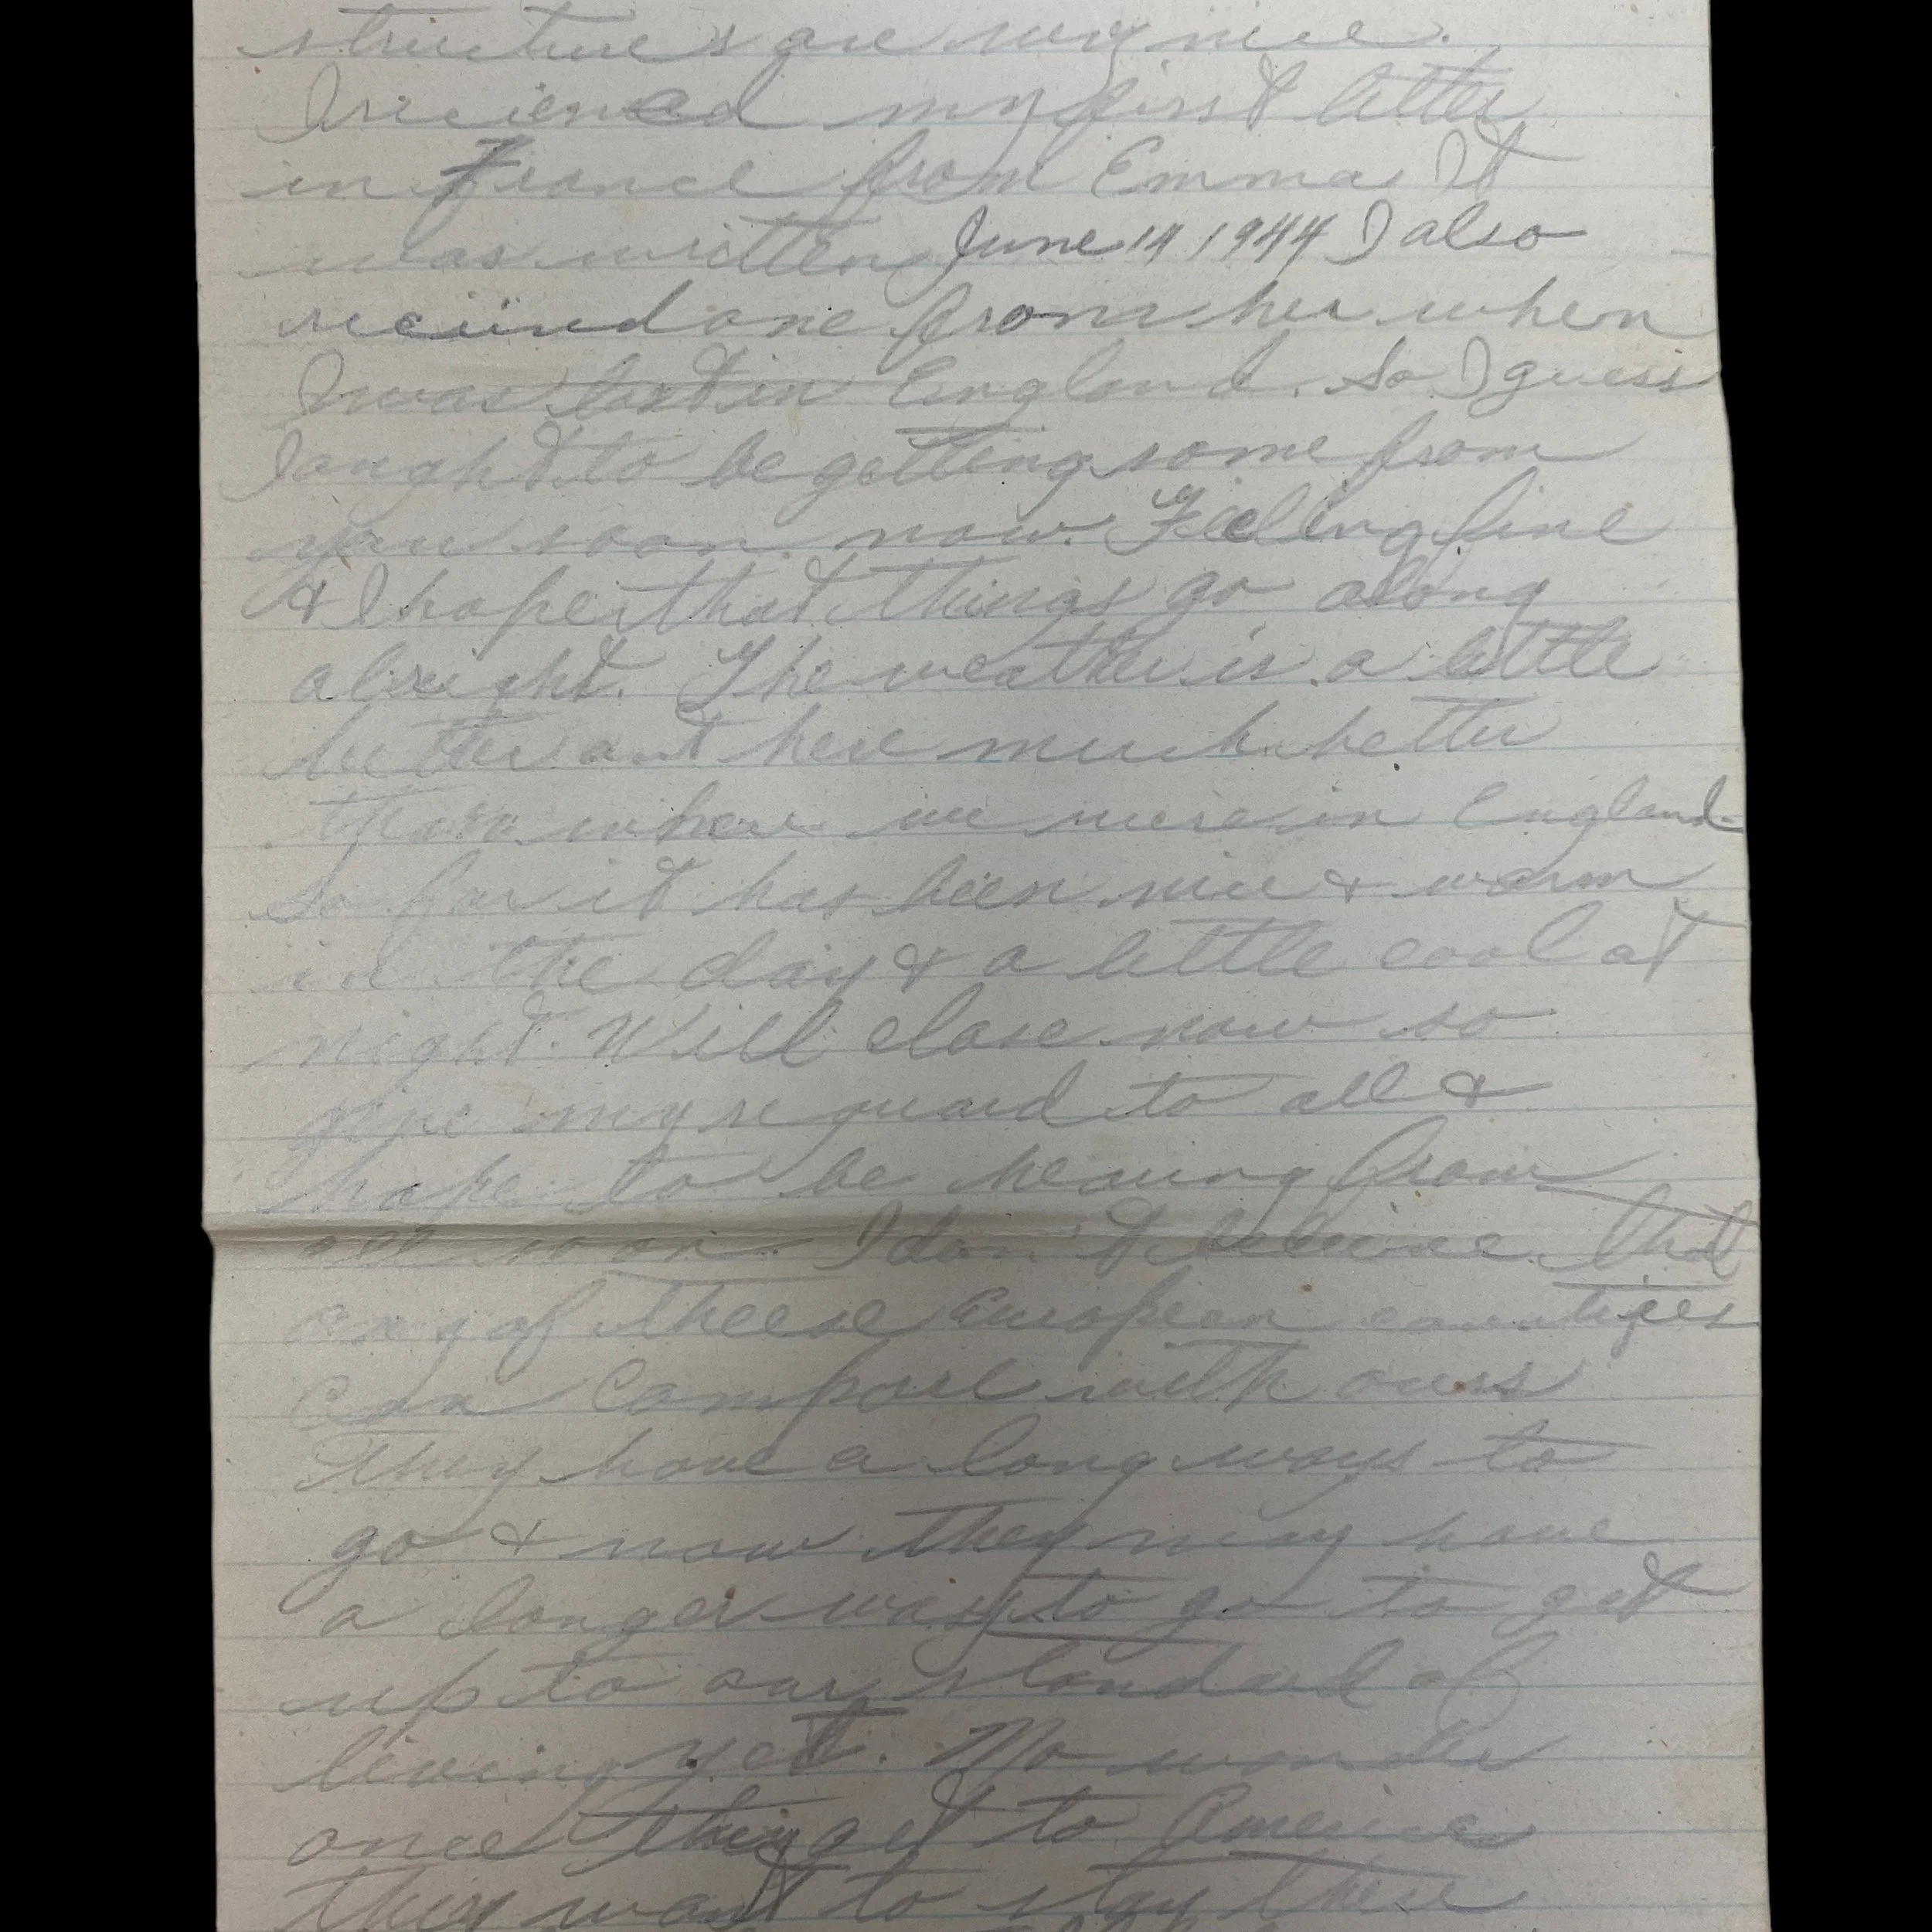 structures are very nice.
I recieved my first letter
in France from Emma It
was written June 14 1944 I also
recieved one from her when
I was in England. So I guess
I ought to be getting some from
you soon now. Feeling fine
& I hope that things go along
alright. The weather is a little
better out here much better
than where we were in England
So far it has been nice & warm
in the day & a little cool at
night. Will close now so
give my reguard to all &
hope to be hearing from
all soon. I don't believe that
any of theese European countries
can compare with ours
They have a long ways to
go & now they may have
a longer way to go to get
up to our standard of
living yet. No wonder
once they get to America
they want to stay there